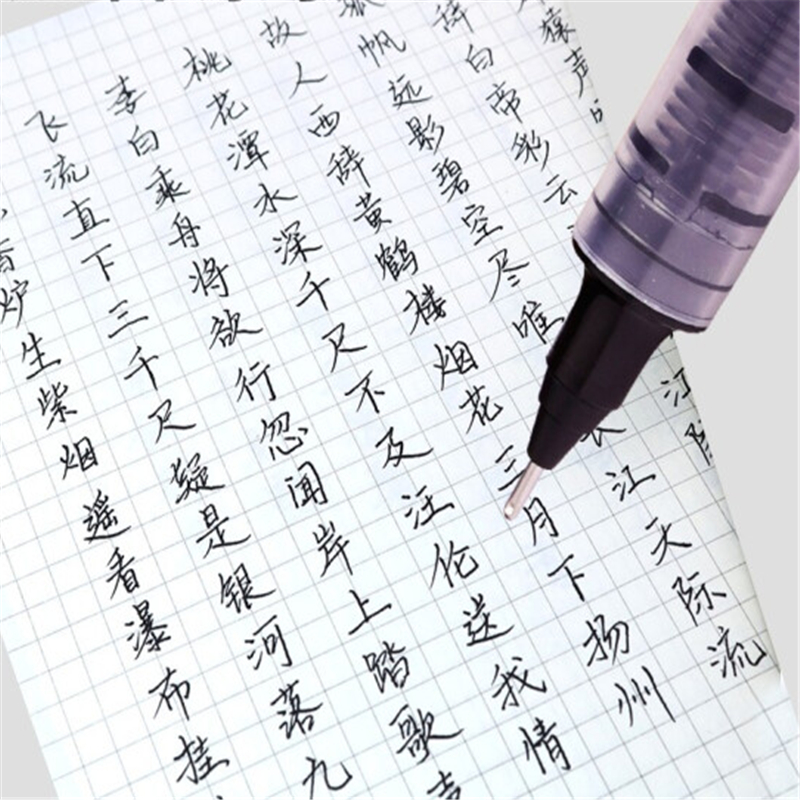 香炉生紫烟遥看瀑布挂
飞流直下三千尺疑是银河落九
李白乘舟将欲行忽闻岸上踏歌声
桃花潭水深千尺不及汪伦送我情
故人西辞黄鹤楼烟花三月下扬州
孤帆远影碧空尽唯长江天际流
辞白帝彩云江
猿声